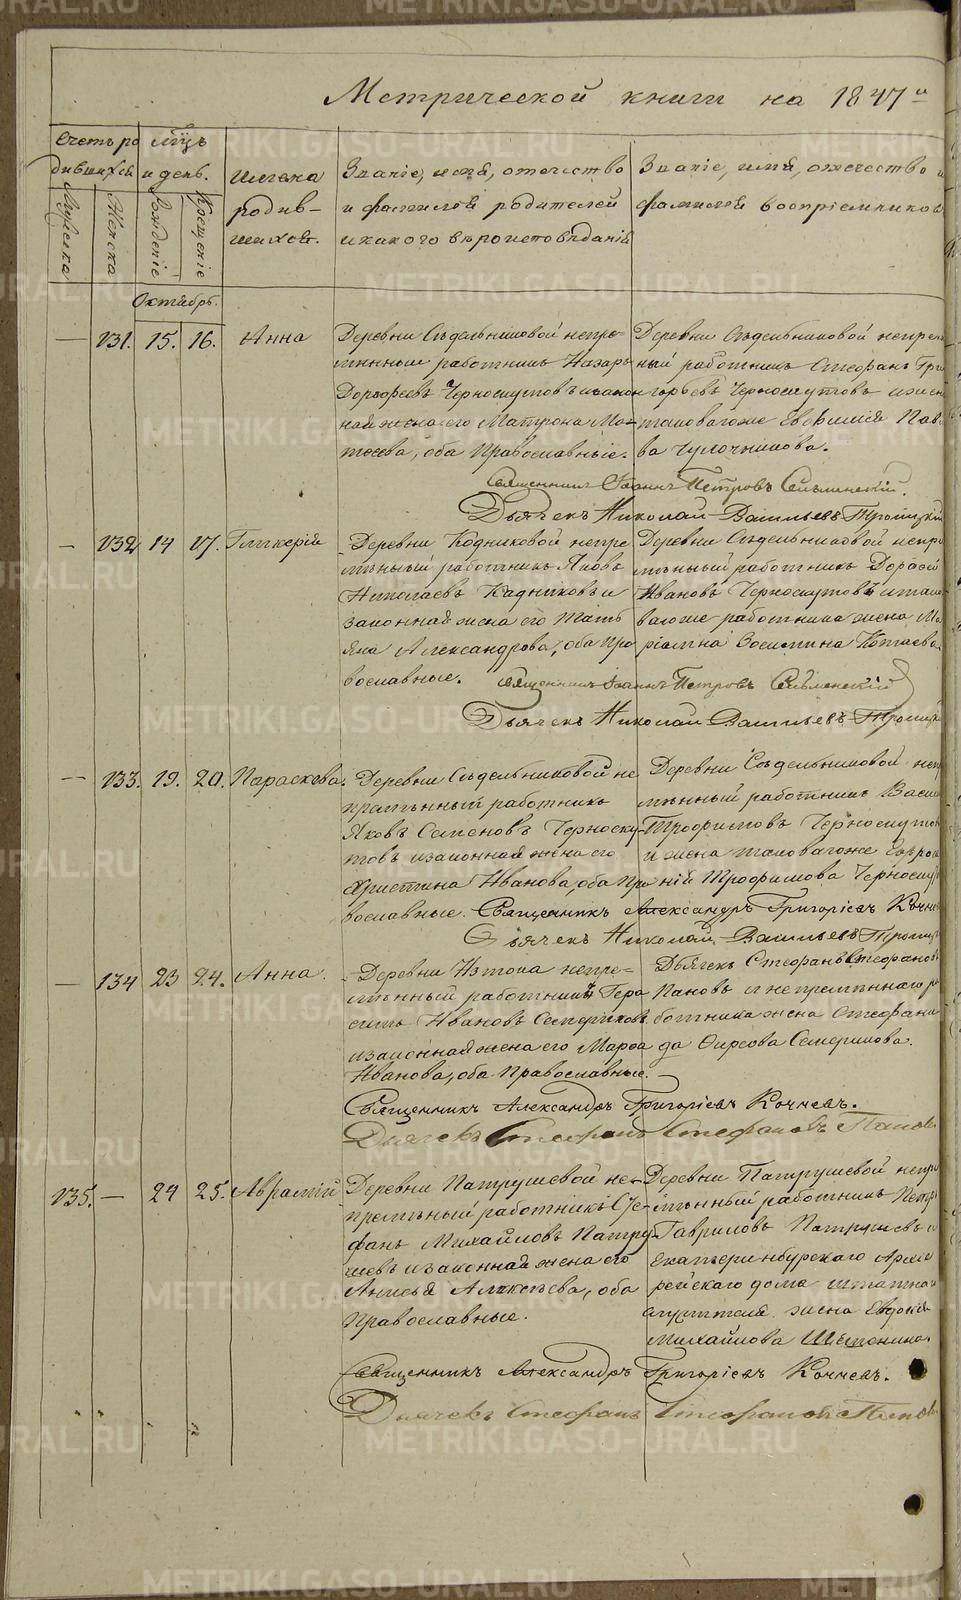 Метрической книги на 1847й
Счетъ родившихся
Мужеска
Женска
мцъ и день.
Рожденіе
Крещеніе
Имена родившихся.
Званіе, имя, отечество
и фамилія родителей
и какого вѣроисповѣданія
Званіе, имя, отечество и
фамилія воспріемниковъ
Октябрь.
— 131. 15. 16. Анна
Деревни Сѣдельниковой непре-
мѣнный работникъ Назаръ
Дорофеевъ Черноскутовъ и закон
ная жена его Матрона Ма-
тѳеева, оба Православные.
Деревни Сѣдельниковой непрем
ный работникъ Стефанъ Гри
горьевъ Черноскутовъ и жен
таковагоже Евфимія Пав
ва Чулочникова.
Священникъ Іоаннъ Петровъ Сельменскій.
Дьячекъ Николай Васильевъ Троицкій
— 132 14 17. Гликерія
Деревни Кодниковой непре
мѣнный работникъ Яковъ
Николаевъ Кадниковъ и
законная жена его Тать
яна Александрова, оба Пра
вославные.
Деревни Сѣдельниковой непре
мѣнный работникъ Дороѳей
Ивановъ Черноскутовъ и тако
вагоже работника жена Ма
Священникъ Іоаннъ Петровъ Сельменскій
Дьячекъ Николай Васильевъ Троицк
— 133. 19. 20. Параскева.
Деревни Сѣдельниковой не
премѣнный работникъ
Яковъ Семеновъ Черноску-
товъ и законная жена его
Христина Иванова, оба Пра
вославные.
Деревни Сѣдельниковой неп
мѣнный работникъ Васил
Трофимовъ Черноскутов
и жена таковагоже Евфро
ній Трофимова Черноску
Священникъ Александръ Григоріевъ Кочнев
Дьячекъ Николай Васильевъ Троицк
— 134 23 24. Анна.
Деревни Изтока непре-
мѣнный работникъ Гера
симъ Ивановъ Семериковъ
и законная жена его Марѳа
Иванова, оба Православные.
Дьячекъ Стефанъ Стефанов
Пановъ и непремѣннаго ра
ботника жена Стефани
да Ѳирсова Семерикова.
Священникъ Александръ Григоріевъ Кочневъ.
Дьячекъ Стефанъ Стефановъ Панов
135. — 24 25. Авраамій
Деревни Патрушевой не-
премѣнный работникъ Сте-
фанъ Михайловъ Патру-
шевъ и законная жена его
Анисья Алексѣева, оба
Православные.
Деревни Патрушевой непре
мѣнный работникъ Петр
Гавриловъ Патрушевъ и
Екатеринбурскаго Архіе
рейскаго дома штатна
служителя жена Евдокія
Михайлова
Священникъ Александръ Григоріевъ Кочневъ.
Дьячекъ Стефанъ Стефановъ Панов
METRIKI.GASO-URAL.RU